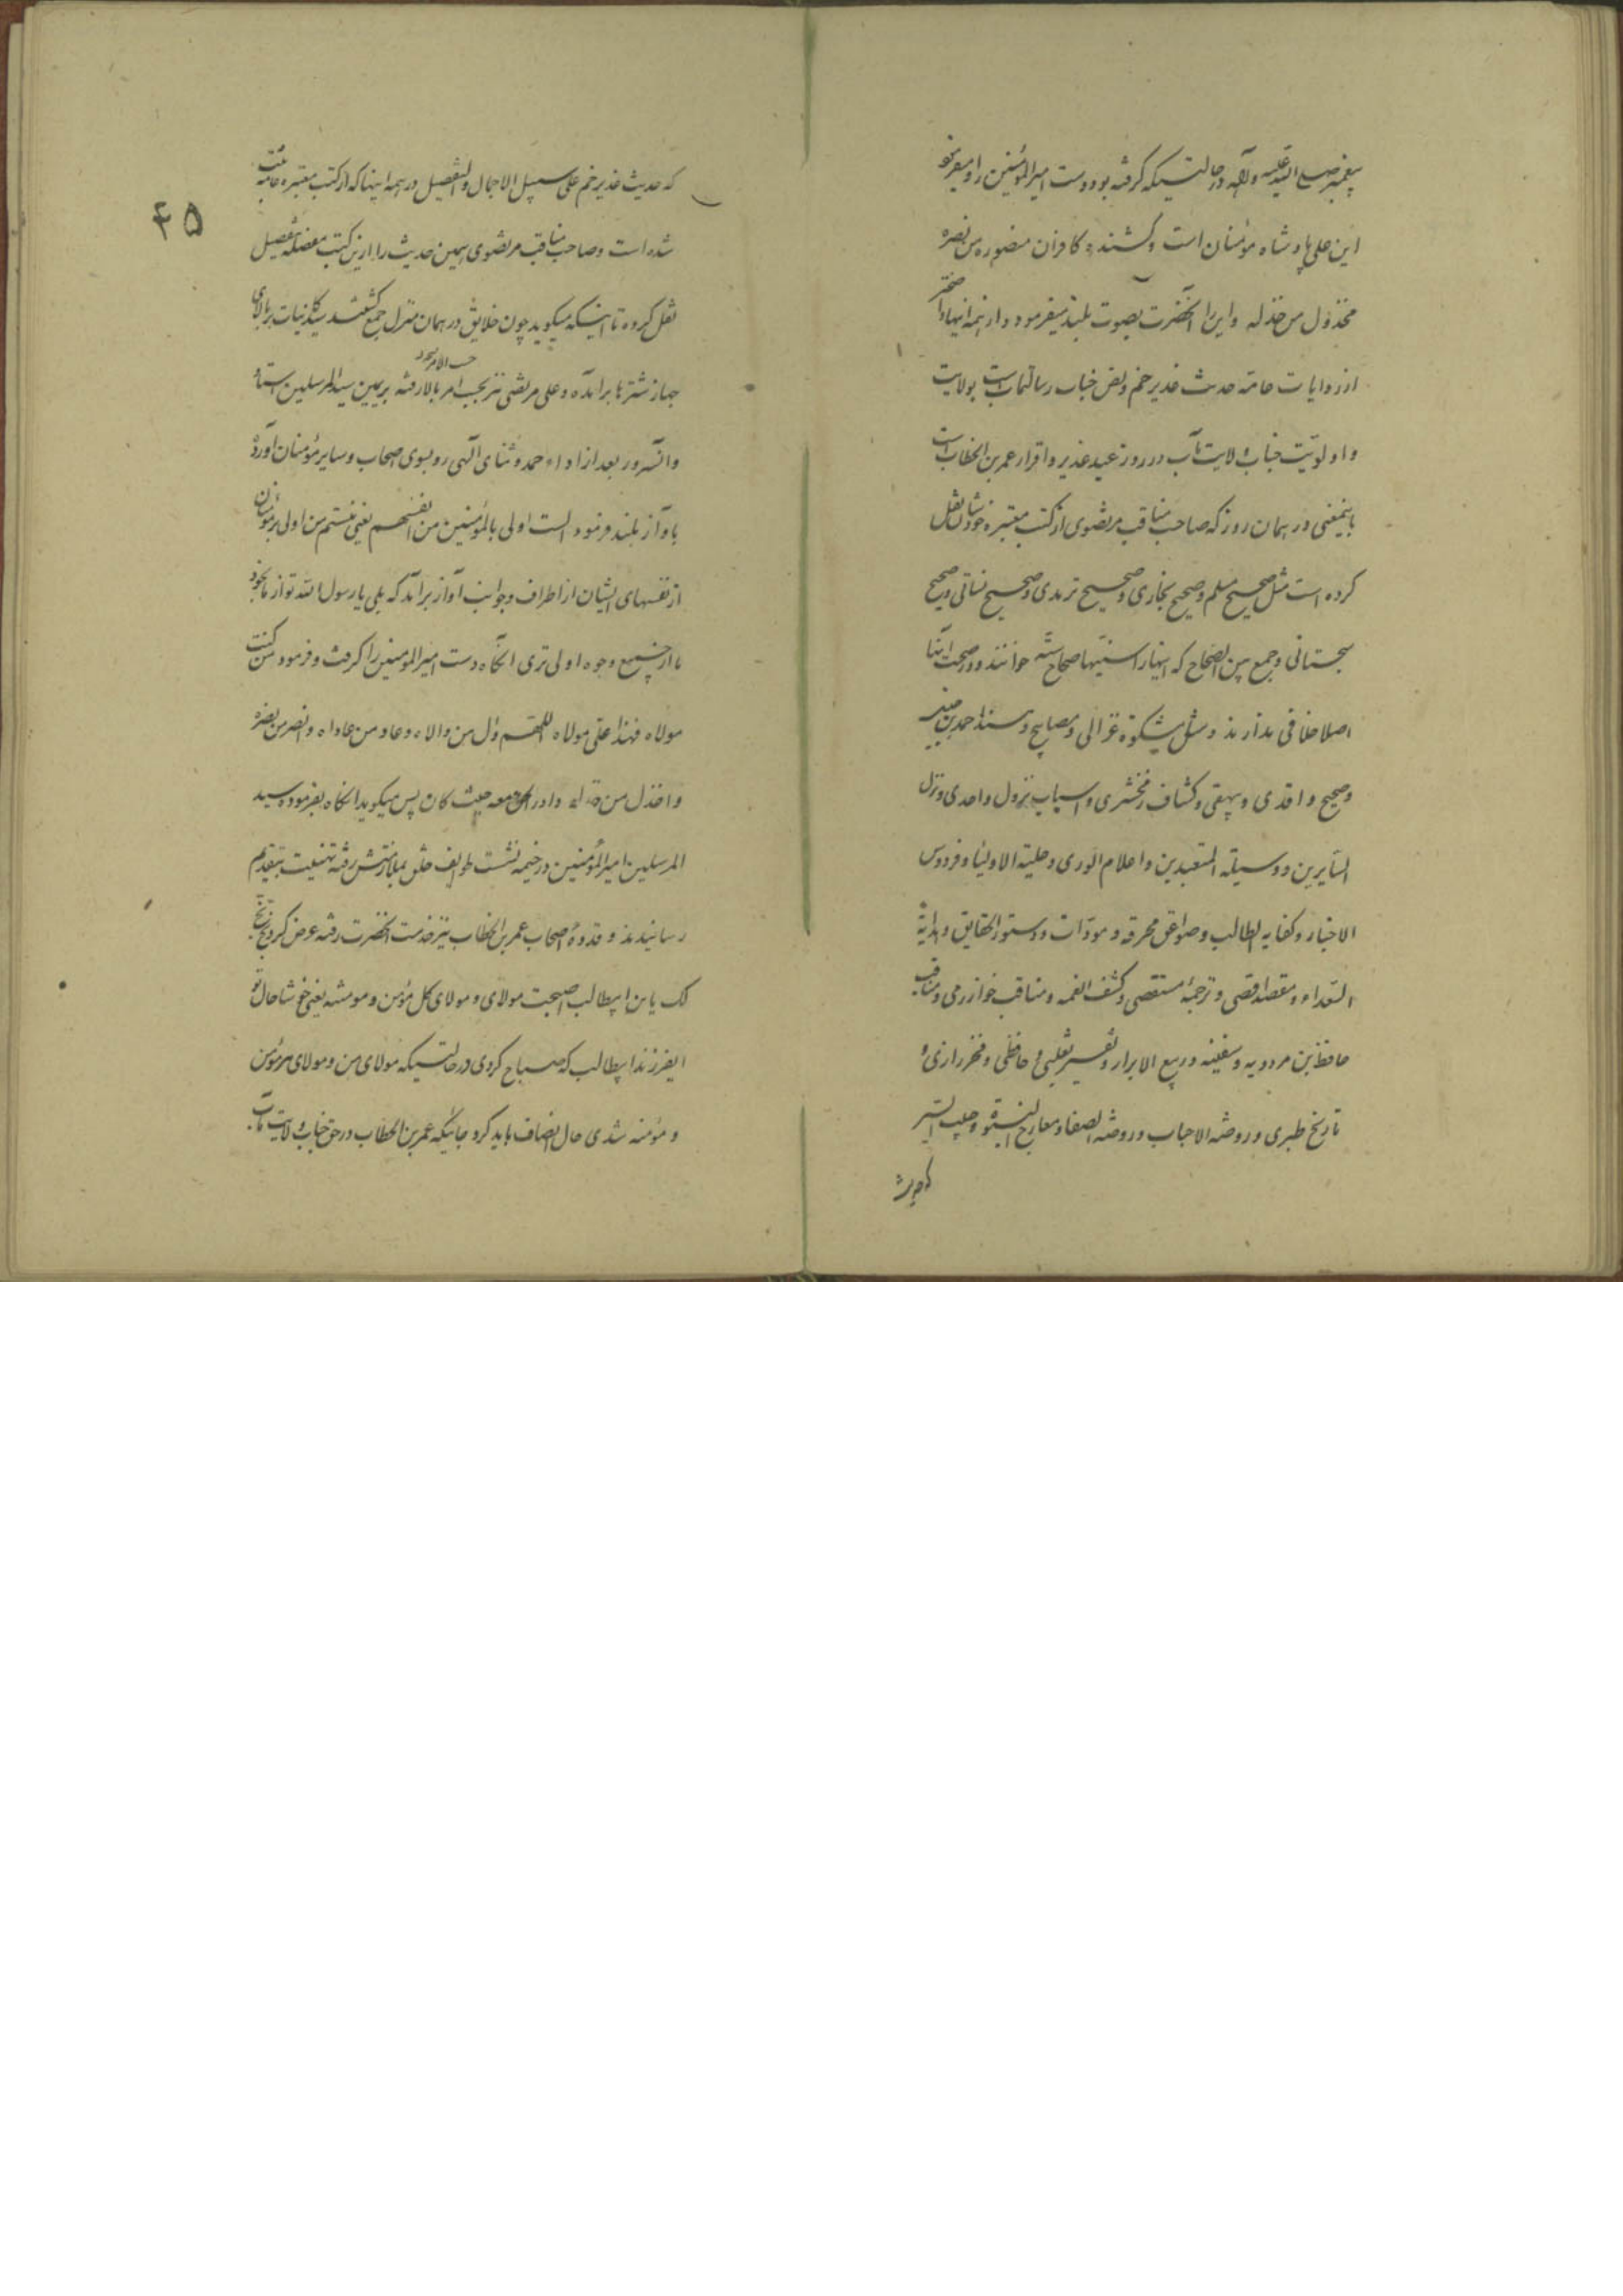 پیغمبر صلی الله علیه وآله در حالتیکه کرفته بود دست امیرالمؤمنین را و میفرمود
این علی پادشاه مؤمنان است و کشنده کافران منصور من نصره
مخذول من خذله و این را آنحضرت بصوت بلند میفرمود و از همه اینها واضحتر
از روایات عامه حدیث غدیر خم و نص جناب رسالتمآب است بولایت
و اولویّت جناب ولایت مآب در روز عید غدیر و اقرار عمر بن الخطاب است
باینمعنی در همان روز که صاحب مناقب مرتضوی از کتب معتبره خودشان نقل
کرده است مثل صحیح مسلم و صحیح بخاری و صحیح ترمدی و صحیح نسائی و صحیح
سجستانی و جمع بین الصحاح که اینها را سنیها صحاح ستّه خوانند و در صحت اینها
اصلا خلافی ندارند و مثل مشکوة غزالی و مصابیح و مسند احمد بن حنبل
و صحیح واقدی و بیهقی و کشاف زمخشری و اسباب نزول واحدی و نزل
السایرین و وسیلة المتعبدین و اعلام الوری و حلیة الاولیا و فردوس
الاخبار و کفایه الطالب و صواعق محرقه و مودّات و دستور الحقایق و هدایة
السّعداء و مقصد اقصی و ترجمهٔ مستقصی و کشف الغمه و مناقب خوارزمی و مناقب
حافظ بن مردویه و سفینه و ربیع الابرار و تفسیر ثعلبی و حافظی و فخر رازی و
تاریخ طبری و روضه الاحباب و روضه الصفا و معارج النبوّة و حبیب السیر
که حدیث
۴۵
که حدیث غدیر خم علی سبیل الاجمال و التفصیل در همه اینها که از کتب معتبره عامه ثبت
شده است و صاحب مناقب مرتضوی همین حدیث را از این کتب مفصله بتفصیل
نقل کرده تا اینکه میکوید چون خلایق در همان منزل جمع کشتند سید کاینات بر بالای
حسب الامر
جهاز شترها برآمده و علی مرتضی نیز بحسب امر بالا رفته بریمین سید المرسلین استاد
و آنسرور بعد از اداء حمد و ثنای الهی رو بسوی اصحاب و سایر مؤمنان آورده
باواز بلند فرمود الست اولی بالمؤمنین من انفسهم یعنی نیستم من اولی بر مؤمنان
از نفسهای ایشان از اطراف و جوانب آواز برآمد که بلی یا رسول الله تو از ما بخود
ما از جمیع وجوه اولی تری آنکاه دست امیرالمومنین را کرفت و فرمود من کنت
مولاه فهذا علی مولاه اللهم وال من والاه و عاد من عاداه وانصر من نصره
واخذل من خذله وادر الحق معه حیث کان پس میکوید آنکاه بفرموده سید
المرسلین امیرالمؤمنین در خیمه نشست طوایف خلق بملازمتش رفته تهنیت بتقدیم
رسانیدند و قدوهٔ اصحاب عمر بن الخطاب نیز خدمت آنحضرت رفته عرض کرد بخ بخ
لک یابن ابیطالب اصبحت مولای و مولای کل مؤمن و مومنه یعنی خوشا حال تو
ایفرزند ابیطالب که صباح کردی در حالتیکه مولای من و مولای هر مؤمن
و مؤمنه شدی حال انصاف باید کرد جائیکه عمر بن الخطاب در حق جناب ولایت مآب